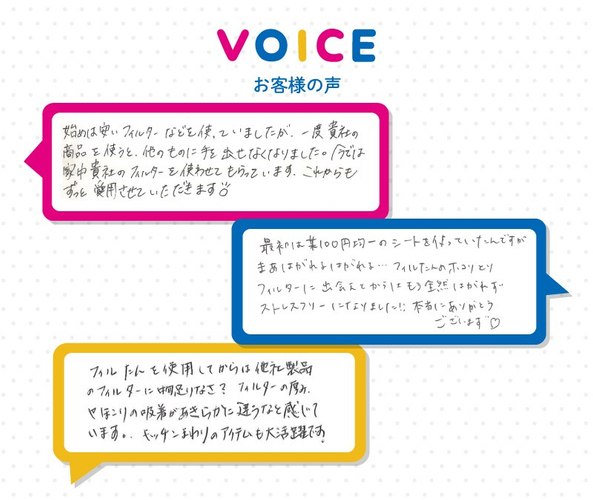 VOICE
お客様の声
始めは安いフィルターなどを使っていましたが、一度貴社の
商品を使うと、他のものに手を出せなくなりました。今では
家中貴社のフィルターを使わせてもらっています。これからも
ずっと愛用させていただきます
最初は某100円均一のシートを使っていたんですが
まあはがれるはがれる… フィルたんのホコリとり
フィルターに出会えてからはもう全然はがれず
ストレスフリーになりました!! 本当にありがとう
ございます♡
フィルたんを使用してからは他社製品
のフィルターに物足りなさ? フィルターの厚み、
やほこりの吸着があきらかに違うなと感じて
います。キッチンまわりのアイテムも大活躍です!